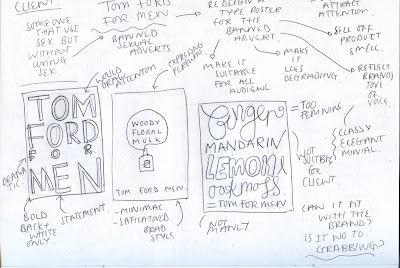 CLIENT
SOMEONE
THAT USE
SEX BUT
WITHOUT
USING
SEX
TOM FORD
FOR MEN
BANNED
SEXUAL
ADVERTS
TYPE POSTER
FOR THE
BANNED
ADVERT.
ATTRACT
ATTENTION.
SELL OFF
PRODUCT
SMELL.
REFLECT
BRAND
TOVE OF
VOICE.
MAKE IT
SUITABLE
FOR ALL
AUDIENCE
MAKE
IT
LESS
DEGRADING.
WOULD
DRAW
ATTENTION
TOM
FORD
FOR
MEN
BOLD
BLACK +
WHITE
ONLY.
STATEMENT.
WOODY
FLORAL
MUSK
TOM FORD MEN.
-MINIMAL
-
BRAD
STYLE
Ginger
MANDARIN
LEMON
oakmoss
=TOM FOR MEN
NOT
MANLY
= TOO
FEMININE
NOT
SUITBLE
FOR
CLIENT.
CLASSY
ELEGANT
MINIAL.
CAN IT FIT
WITH THE
BRAND?
IS IT NO TO
GRABBING?